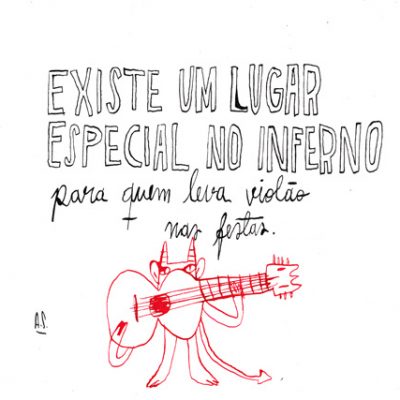 EXISTE UM LUGAR
ESPECIAL NO INFERNO
para quem leva violão
nas festas.
A.S.